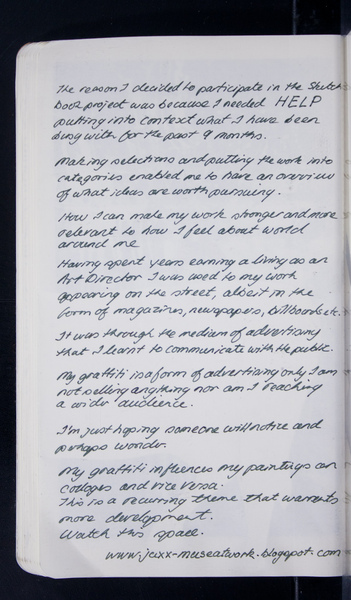 The reason I decided to participate in the Sketch
book project was because I needed HELP
putting into context what I have been
busy with for the past 9 months.
Making selections and putting the work into
categories enabled me to have an overview
of what ideas are worth pursuing.
How I can make my work stronger and more
relevant to how I feel about world
around me
Having spent years earning a living as an
Art Director I was used to my work
appearing on the street, albeit in the
form of magazines, newspapers, billboards etc.
It was through the medium of advertising
that I learnt to communicate with the public.
My graffiti is a form of advertising only I am
not selling anything nor am I reaching
a wider audience.
I'm just hoping someone will notice and
perhaps wonder.
My graffiti influences my paintings an
collages and vice versa.
This is a recurring theme that warrants
more development.
Watch this space.
www.jaxx-museatwork.blogspot.com